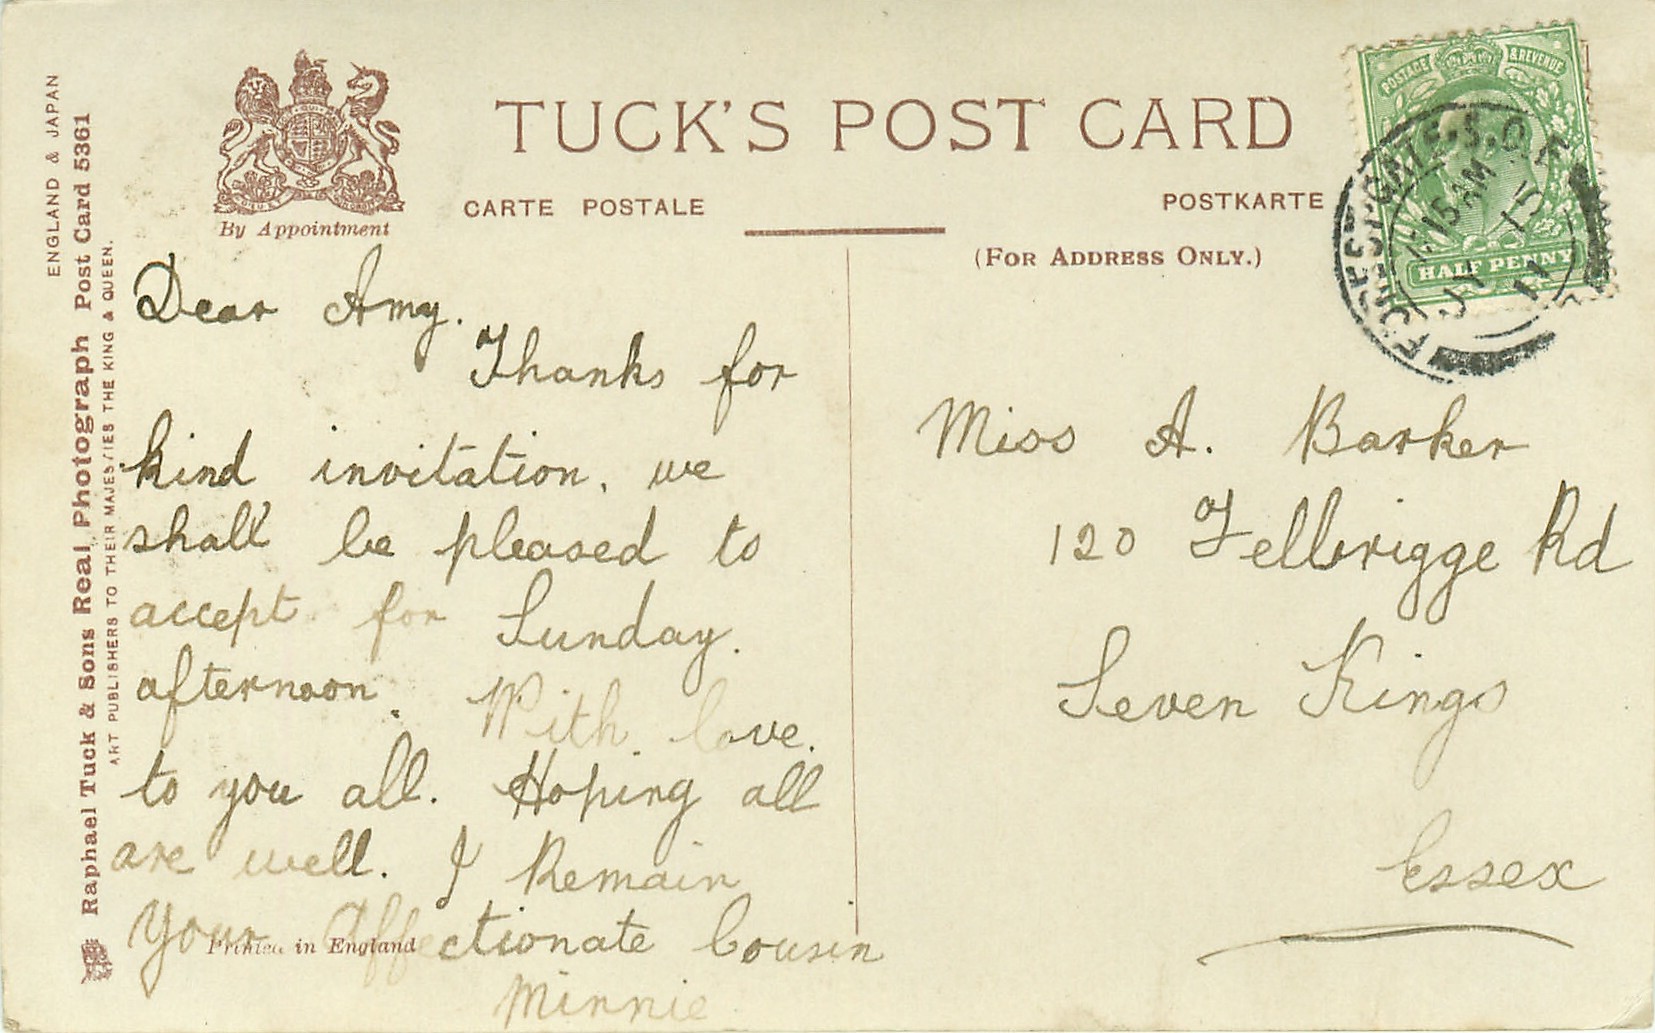 TUCK'S POST CARD
CARTE POSTALE
POSTKARTE
(FOR ADDRESS ONLY.)
By Appointment
ENGLAND & JAPAN
Raphael Tuck & Sons Real Photograph Post Card 5361
ART PUBLISHERS TO THEIR MAJESTIES THE KING & QUEEN.
Printed in England
POSTAGE & REVENUE
HALF PENNY
FOREST GATE. S.O. E
15 AM
JY 15
11
Dear Amy.
Thanks for
kind invitation, we
shall be pleased to
accept for Sunday.
afternoon. With love.
to you all. Hoping all
are well. I Remain
Your Affectionate Cousin
Minnie
Miss A. Barker
120 Felbrigge Rd
Seven Kings
Essex